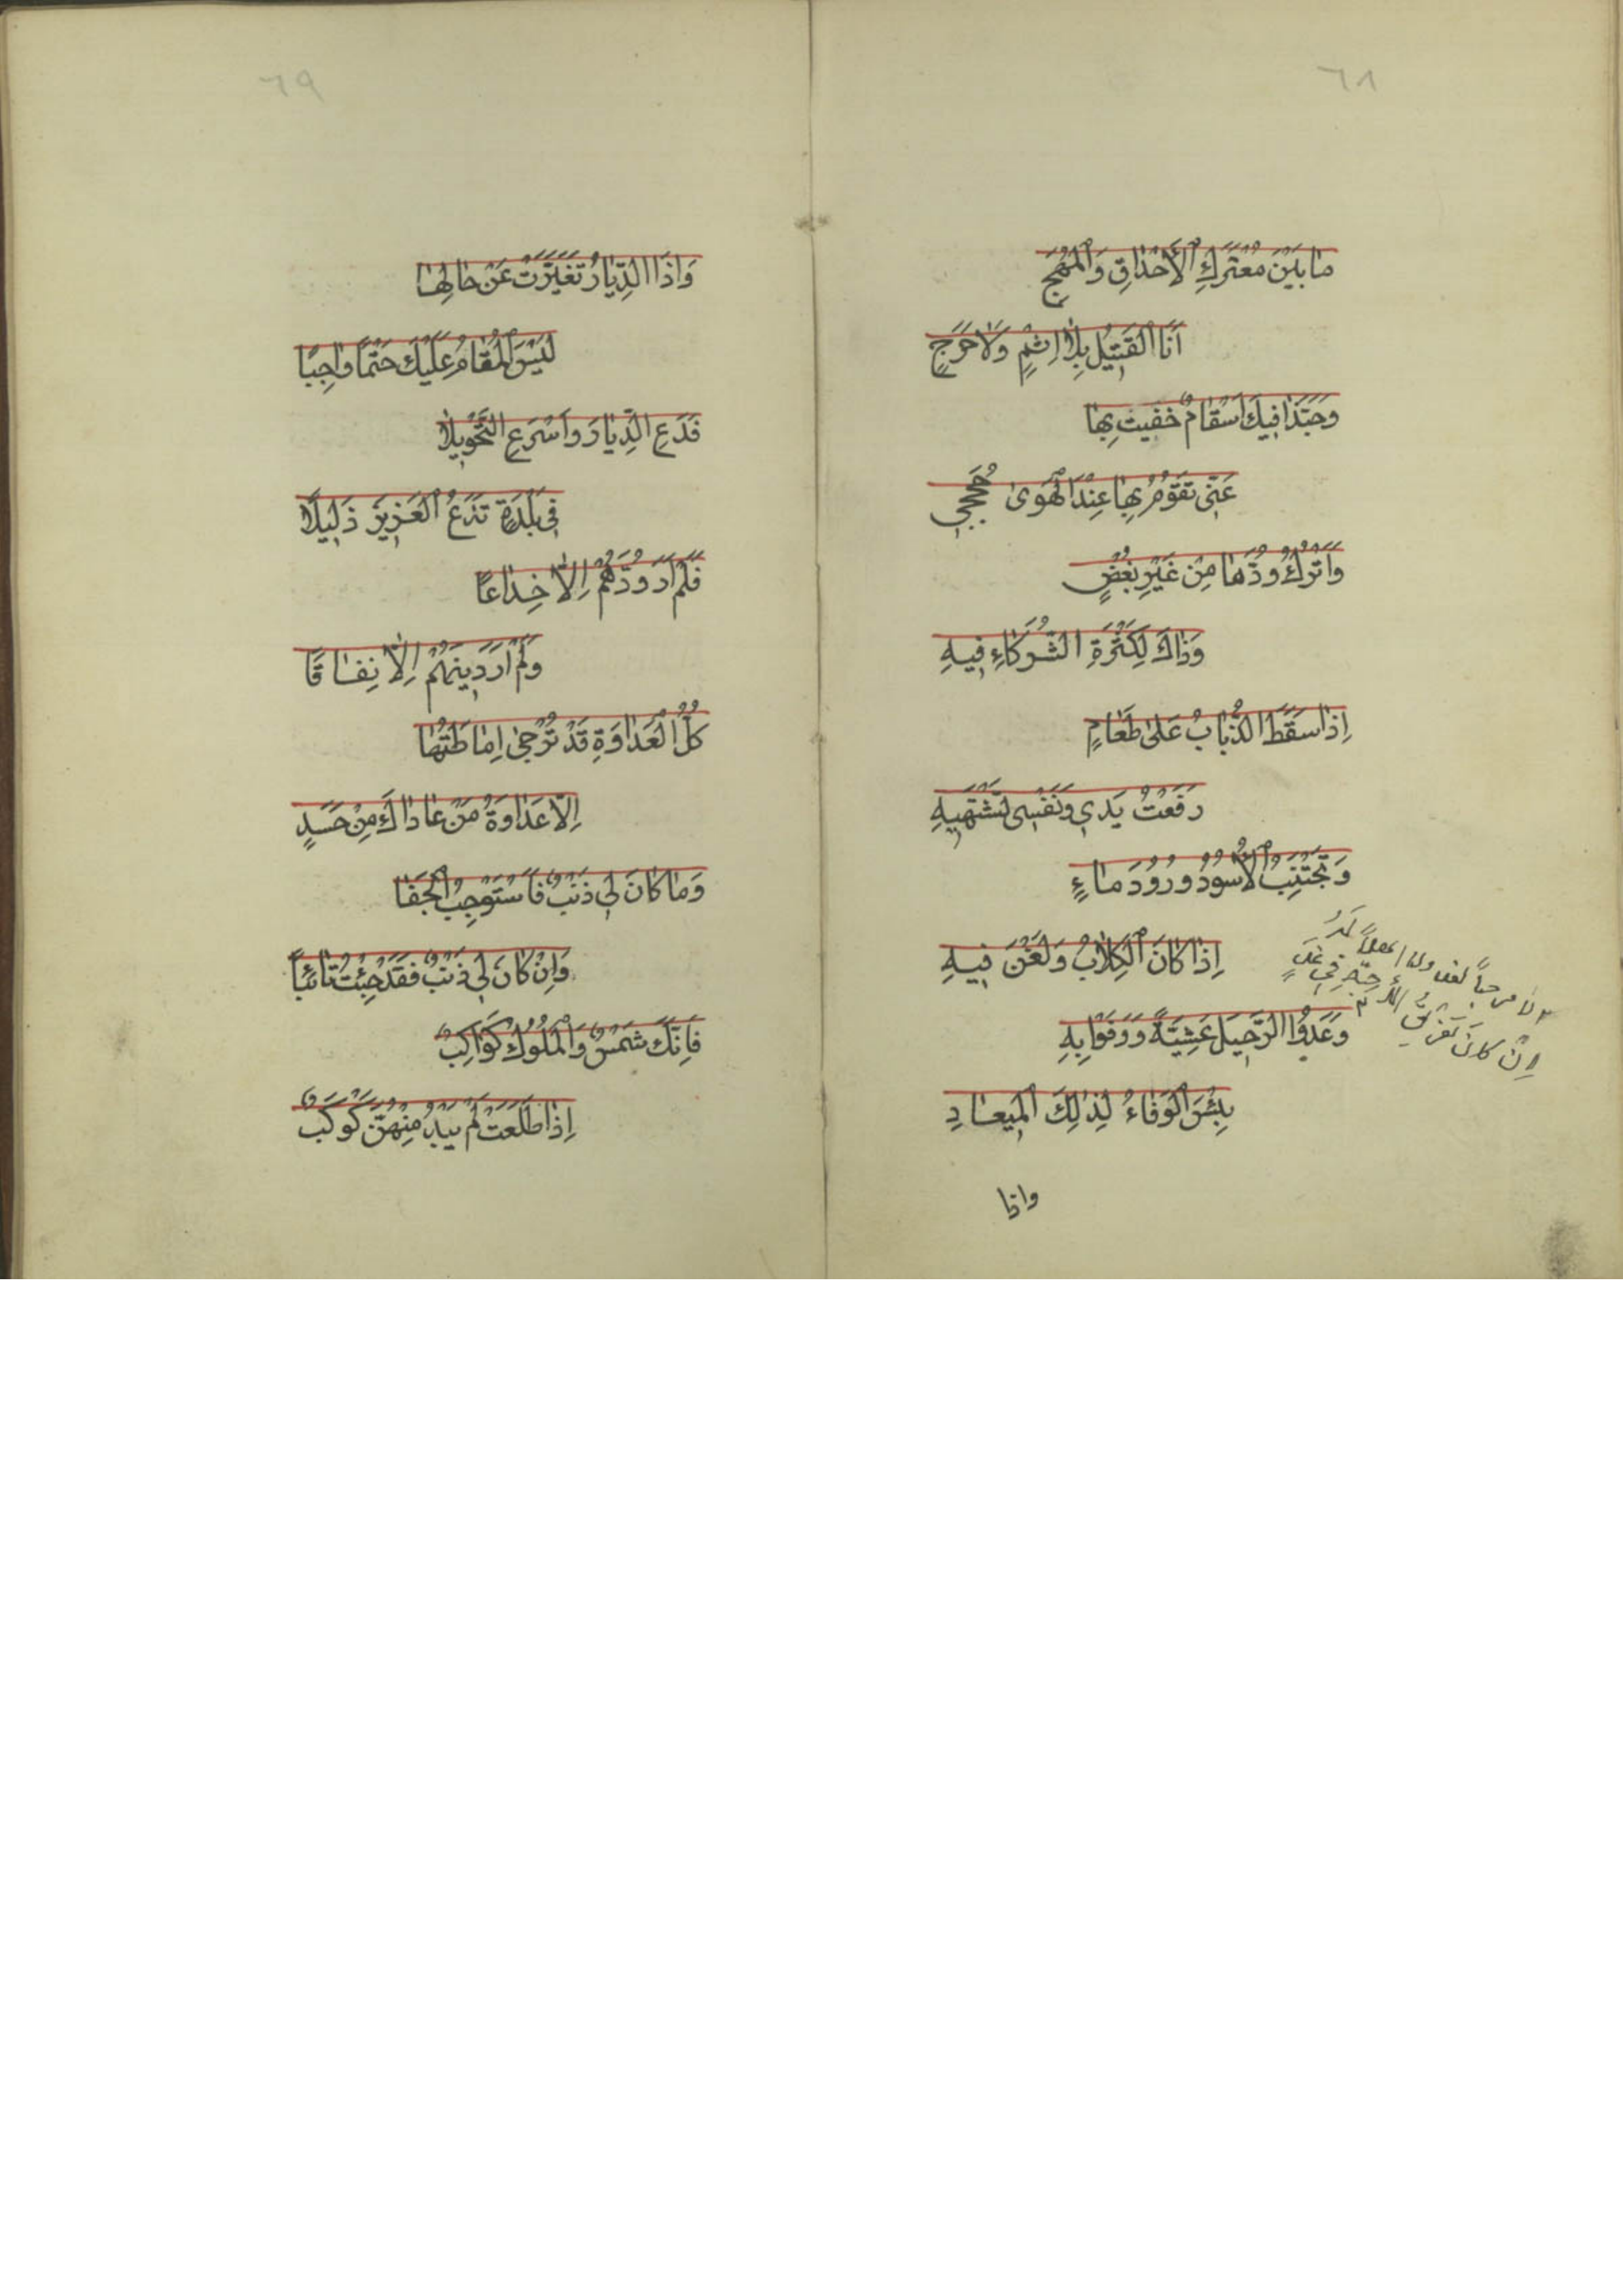 ٦٨
مَا بَيْنَ مُعْتَرَكِ الْأَحْدَاقِ وَالْمُهَجِ
اَنَا الْقَتِيلُ بِلَا اِثْمٍ وَلَا حَرَجٍ
وَحَبَّذَا فِيكَ اَسْقَامٌ خَفِيتُ بِهَا
عَنّى تَقُومُ بِهَا عِنْدَ الْهَوٰى حُجَجِي
وَاَتْرُكُ وُدَّهَا مِنْ غَيْرِ بُغْضٍ
وَذَاكَ لِكَثْرَةِ الشُّرَكَاءِ فِيهِ
اِذَا سَقَطَ الذُّبَابُ عَلٰى طَعَامٍ
رَفَعْتُ يَدِي وَنَفْسِى تَشْتَهِيهِ
وَتَجْتَنِبُ الْأُسُودُ وُرُودَ مَاءٍ
اِذَا كَانَ الْكِلَابُ وَلَغْنَ فِيهِ
لا مرحباً بغد ولا اهلاً
اِنْ كَانَ تَفْرِيقُ فِي غَدٍ
وَعَدُوا الرَّحِيلَ عَشِيَّةً وَوَفَوْا بِهِ
بِئْسَ الْوَفَاءُ لِذٰلِكَ الْمِيعَادِ
واذا
٦٩
وَاِذَا الدِّيَارُ تَغَيَّرَتْ عَنْ حَالِهَا
لَيْسَ الْمُقَامُ عَلَيْكَ حَتْمًا وَاجِبًا
فَدَعِ الدِّيَارَ وَاَسْرِعِ التَّحْوِيلَا
فِي بَلْدَةٍ تَدَعُ الْعَزِيزَ ذَلِيلًا
فَلَمْ اَرَ وُدَّهُمْ اِلَّا خِدَاعًا
وَلَمْ اَرَ دِينَهُمْ اِلَّا نِفَاقًا
كُلُّ الْعَدَاوَةِ قَدْ تُرْجٰى اِمَاطَتُهَا
اِلَّا عَدَاوَةُ مَنْ عَادَاكَ مِنْ حَسَدٍ
وَمَا كَانَ لِي ذَنْبٌ فَاَسْتَوْجِبُ الْجَفَا
وَاِنْ كَانَ لِي ذَنْبٌ فَقَدْ جِئْتُ تَائِبًا
فَاِنَّكَ شَمْسٌ وَالْمُلُوكُ كَوَاكِبٌ
اِذَا طَلَعَتْ لَمْ يَبْدُ مِنْهُنَّ كَوْكَبٌ